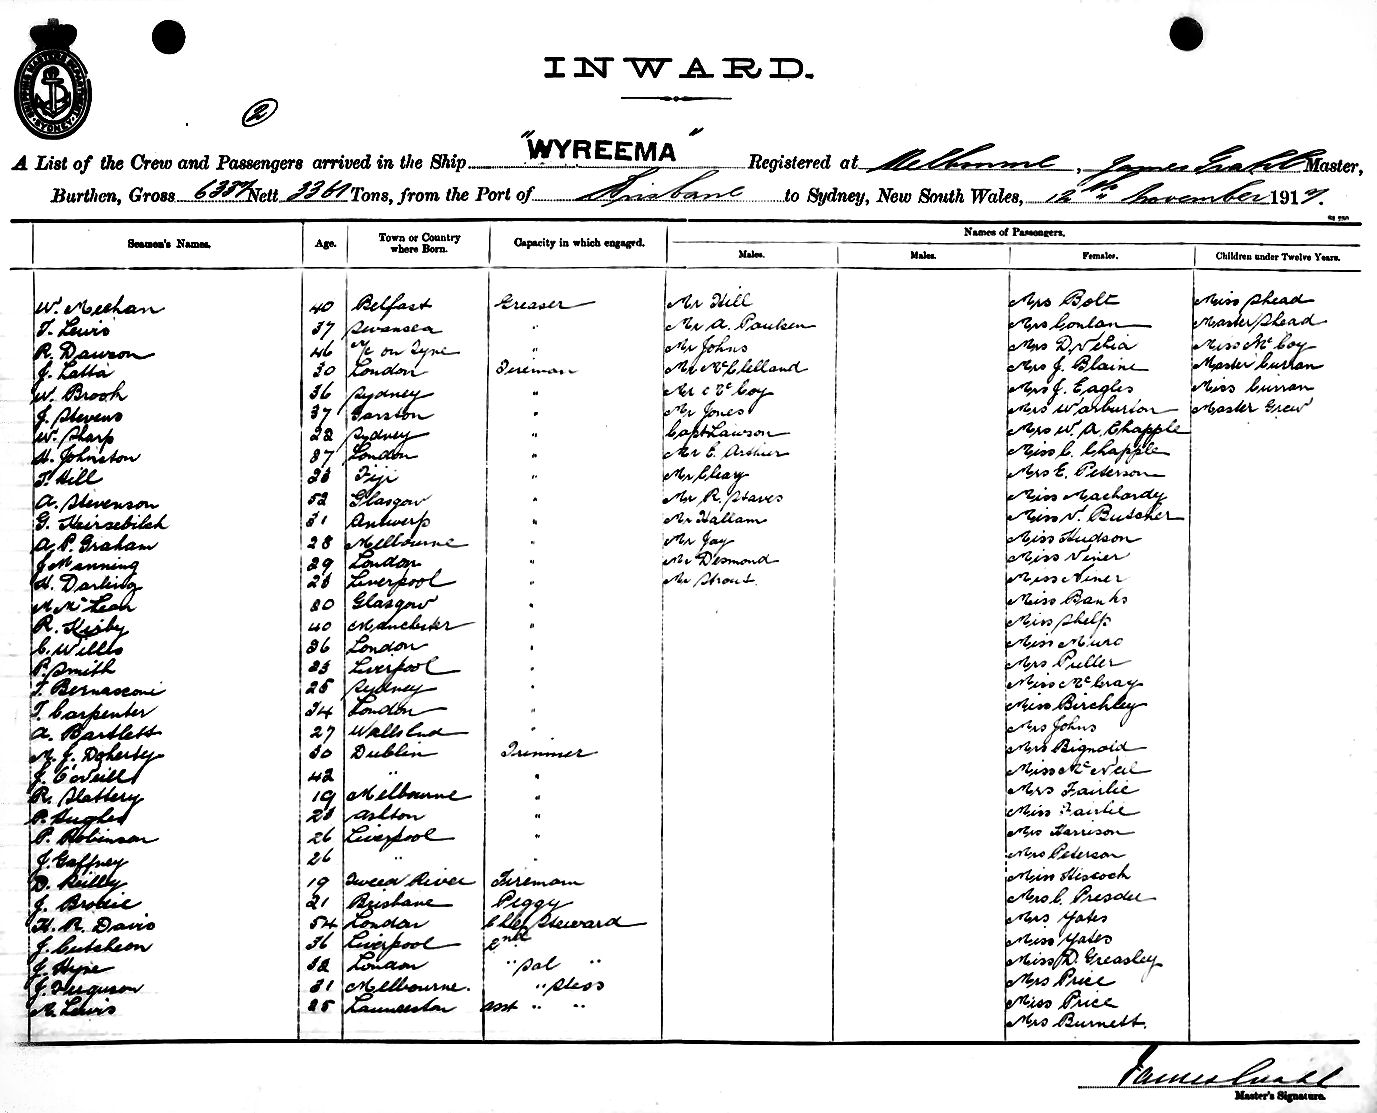 INWARD.
2
A List of the Crew and Passengers arrived in the Ship "WYREEMA" Registered at Melbourne, James Grahl Master,
Burthen, Gross 6338 Nett 3361 Tons, from the Port of Brisbane to Sydney, New South Wales, 12th November 1917.
Names of Passengers.
Seamen's Names. Age. Town or Country where Born. Capacity in which engaged. Males. Males. Females. Children under Twelve Years.
W. Meehan 40 Belfast Greaser Mr Hill Mrs Bolt Miss Shead
T. Lewis 37 Swansea " Mr A. Paulsen Mrs Conlan Master Shead
R. Dawson 46 N/c on Tyne " Mr Johns Mrs D. Velia Miss McCoy
J. Latta 30 London Fireman Mr McClelland Mrs J. Blaine Master Curran
W. Brook 36 Sydney " Mr McCoy Mrs J. Eagles Miss Curran
J. Stevens 37 Garston " Mr Jones Mrs Warburton Master Grew
W. Sharp 22 Sydney " Capt Lawson Mrs W. A. Chapple
H. Johnston 37 London " Mr E. Arthur Miss C. Chapple
T. Hill 23 Fiji " Mr Cleay Mrs E. Peterson
A. Stevenson 52 Glasgow " Mr R. Staves Miss Machardy
G. Hairsebilck 31 Antwerp " Mr Hallam Miss V. Butcher
A. P. Graham 28 Melbourne " Mr Jay Miss Hudson
J Manning 29 London " Mr Desmond Miss Viner
H. Darling 23 Liverpool " Mr Strout. Miss Viner
M. McLean 30 Glasgow " Miss Banks
R. Kirby 40 Manchester " Miss Shelp
C. Willis 36 London " Miss Muro
P. Smith 23 Liverpool " Mrs Puller
T. Bernasconi 25 Sydney " Miss McCray
T. Carpenter 34 London " Miss Birchley
A. Bartlett 27 Wallsend " Mrs Johns
M. J. Doherty 30 Dublin Trimmer Mrs Bignold
J. O'Neill 42 " " Miss McNeil
R. Slattery 19 Melbourne " Mrs Fairlie
P. Hughes 23 Ashton " Miss Fairlie
P. Robinson 26 Liverpool " Mrs Harrison
J. Gaffney 26 " " Mrs Peterson
D. Reilly 19 Tweed River Fireman Miss Hiscock
J. Brodie 21 Brisbane Peggy Mrs C. Presdee
H. R. Davis 54 London Chief Steward Mrs Yates
J. Cutcheon 36 Liverpool 2nd Miss Yates
J. Hype 32 London " Sal " Miss D. Greasley
J. Ferguson 31 Melbourne. " Stess Mrs Price
A. Lewis 25 Launceston asst " " Miss Price
Mrs Burnett.
James Grahl
Master's Signature.